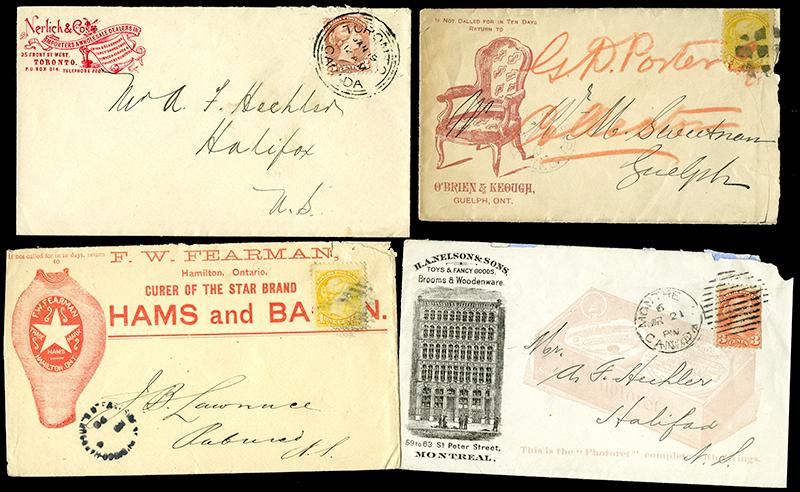 Nerlich & Co.
IMPORTERS & WHOLESALE DEALERS IN
35 FRONT ST. WEST.
TORONTO.
P.O. BOX 314. TELEPHONE
TORONTO
CANADA
Mr A. F. Hechler
Halifax
N.S.
IF NOT CALLED FOR IN TEN DAYS
RETURN TO
G. D. Porter
Wm. Sweetnam
Guelph
O'BRIEN & KEOUGH,
GUELPH, ONT.
If not called for in 10 days, return
to
F. W. FEARMAN,
Hamilton, Ontario.
CURER OF THE STAR BRAND
HAMS and BACON.
F.W. FEARMAN
TRADE MARK
HAMS
HAMILTON, ONT.
J. B. Lawrence
N.S.
H.A. NELSON & SONS,
TOYS & FANCY GOODS,
Brooms & Woodenware.
59 to 63 St. Peter Street,
MONTREAL,
MONTRE
6
MR 21
PM
CANADA
3 CENTS 3
Mr.
A. F. Hechler
Halifax
N.S.
This is the "Photoret" complete with rings.